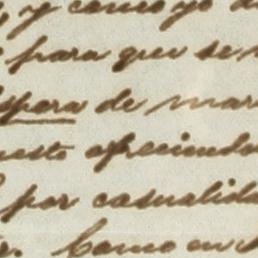 y como yo
para que se
spera de mar
uesto apreciendo
por casualida
Como en